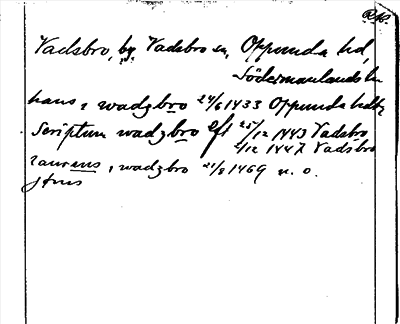 RA
Vadsbro, by, Vadsbro sn, Oppunda hd,
Södermanlands län
hans i wadzbro 24/6 1433 Oppunda hdbr
Scriptum wadzbro eft 25/12 1443 Vadsbro
2/12 1447 Vadsbro
laurens i wadzbro 21/8 1469 n. o.